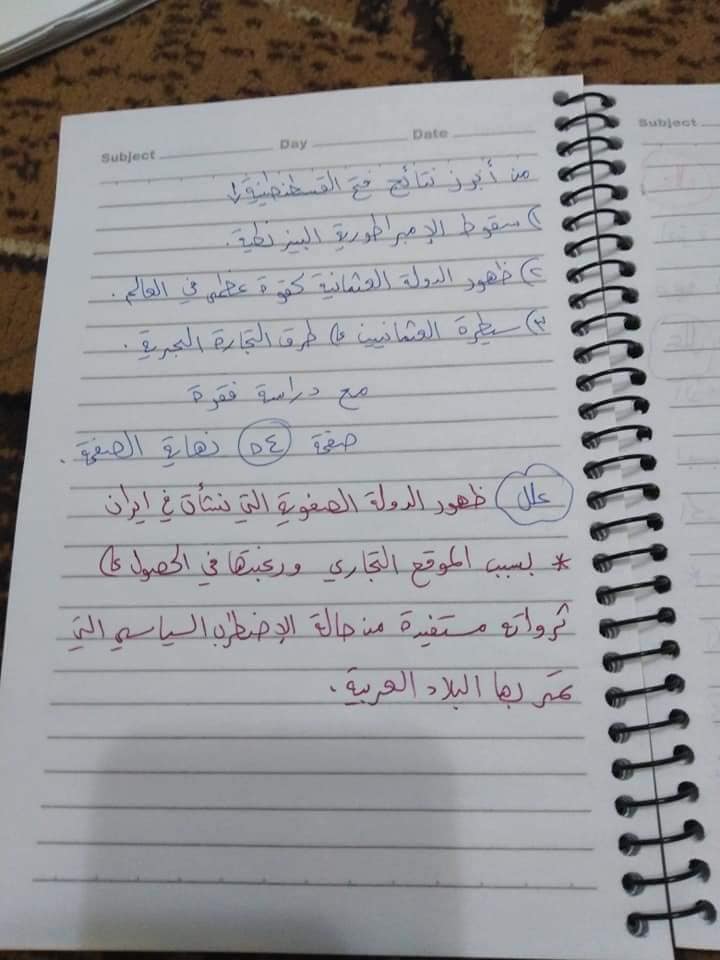 Subject Day Date
Subject
من أبرز نتائج فتح القسطنطينية:
١) سقوط الإمبراطورية البيزنطية.
٢) ظهور الدولة العثمانية كقوة عظمى في العالم.
٣) سيطرة العثمانيين ع طرق التجارة البحرية.
مع دراسة فقرة
صفحة ٥٤ نهاية الصفحة.
علل ظهور الدولة الصفوية التي نشأت في ايران
* بسبب الموقع التجاري ورغبتها في الحصول ع
ثرواته مستفيدة من حالة الإضطراب السياسي التي
تمر بها البلاد العربية.